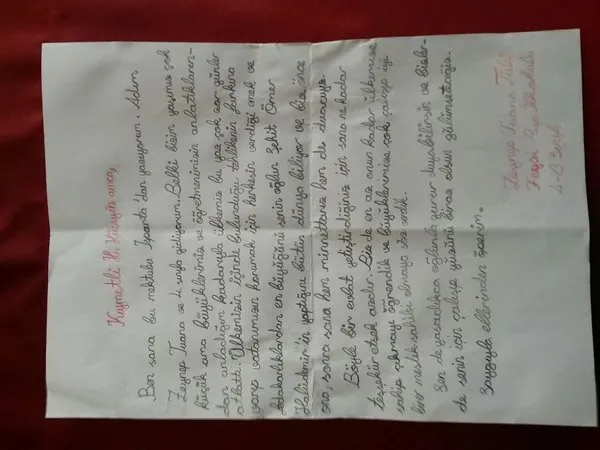 Kıymetli H. Hüseyin amca,
Ben sana bu mektubu Isparta'dan yazıyorum. Adım
Zeynep Tuana ve 4. sınıfa gidiyorum. Belki bizim yaşımız çok
küçük ama büyüklerimiz ve öğretmenimizin anlattıkların-
dan anladığım kadarıyla ülkemiz bu yaz çok zor günler
atlattı. Ülkemizin içinde bulunduğu tehlikenin farkına
varıp vatanımızın korumak için herkesin verdiği emek ve
fedakarlıklardan en büyüğünü senin oğlun Şehit Ömer
Halisdemir'in yaptığını bütün dünya biliyor ve biz önce
ona, sonra sana hem minnettarız hem de duacıyız.
Böyle bir evlat yetiştirdiğiniz için sana ne kadar
teşekkür etsek azdır. Biz de en az onun kadar ülkemize
sahip çıkmayı öğrendik ve büyüklerimize çok çalışıp iyi
birer meslek sahibi olmaya söz verdik.
Sen de yaşadıkca oğlunla gurur duyabilirsin ve bizler-
de senin için çalışıp yüzünü biraz olsun gülümsetceğiz.
Saygıyla ellerinden öperim.
Zeynep Tuana
4-D Sınıfı